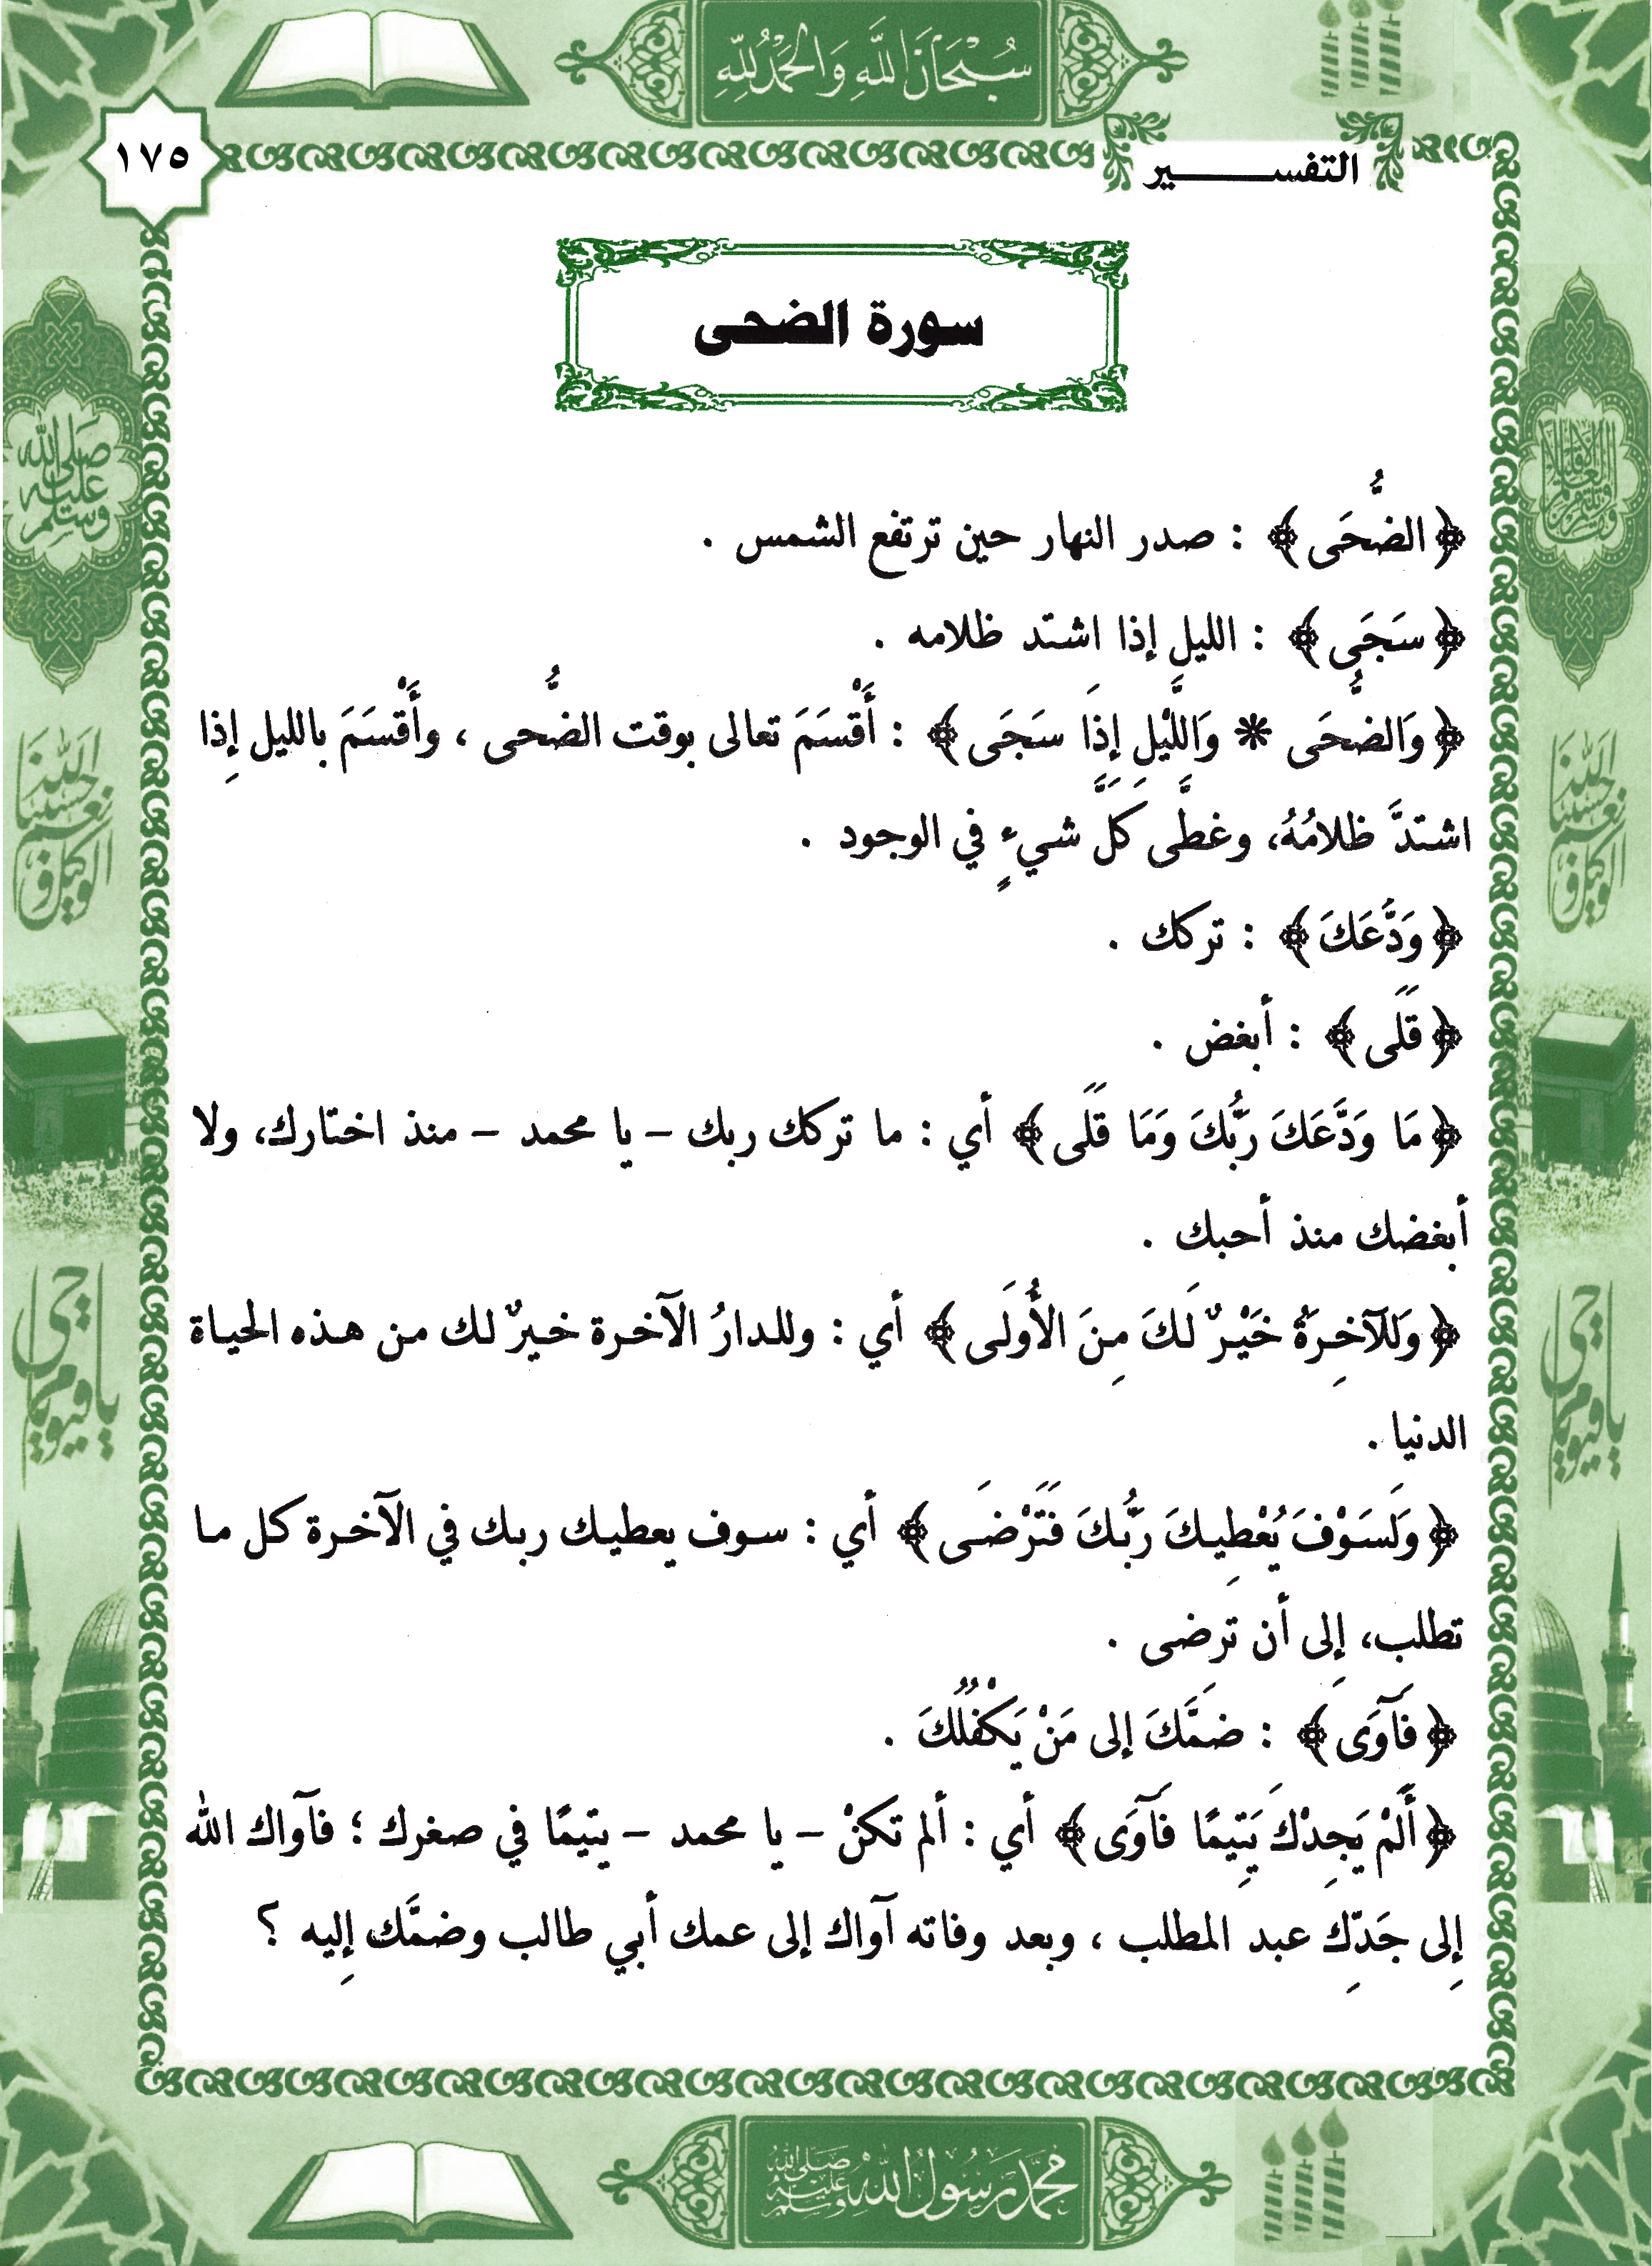 سُبْحَانَ اللَّهِ وَالْحَمْدُ لِلَّهِ
١٧٥
التفسير
سورة الضحى
﴿الضُّحَى﴾ : صدر النهار حين ترتفع الشمس .
﴿سَجَى﴾ : الليل إذا اشتد ظلامه .
﴿وَالضُّحَى * وَاللَّيْلِ إِذَا سَجَى﴾ : أَقْسَمَ تعالى بوقت الضُّحى ، وأَقْسَمَ بالليل إِذا
اشتدَّ ظلامُهُ، وغطَّى كلَّ شيءٍ في الوجود .
﴿وَدَّعَكَ﴾ : تركك .
﴿قَلَى﴾ : أبغض .
﴿مَا وَدَّعَكَ رَبُّكَ وَمَا قَلَى﴾ أي : ما تركك ربك – يا محمد – منذ اختارك، ولا
أبغضك منذ أحبك .
﴿وَللآخِرَةُ خَيْرٌ لَكَ مِنَ الأُولَى﴾ أي : وللدارُ الآخرة خيرٌ لك من هذه الحياة
الدنيا .
﴿وَلَسَوْفَ يُعْطِيكَ رَبُّكَ فَتَرْضَى﴾ أي : سوف يعطيك ربك في الآخرة كل ما
تطلب، إِلى أن ترضى .
﴿فَآوَى﴾ : ضَمَّكَ إلى مَنْ يَكْفُلُكَ .
﴿أَلَمْ يَجِدْكَ يَتِيمًا فَآوَى﴾ أي : ألم تكنْ – يا محمد – يتيمًا في صغرك ؛ فآواك الله
إِلى جَدِّك عبد المطلب ، وبعد وفاته آواك إلى عمك أبي طالب وضمَّك إِليه ؟
صلى الله عليه وسلم
الله حسبنا نعم الوكيل
الله حسبنا نعم الوكيل
يا حي يا قيوم
يا حي يا قيوم
محمد رسول الله صلى الله عليه وسلم